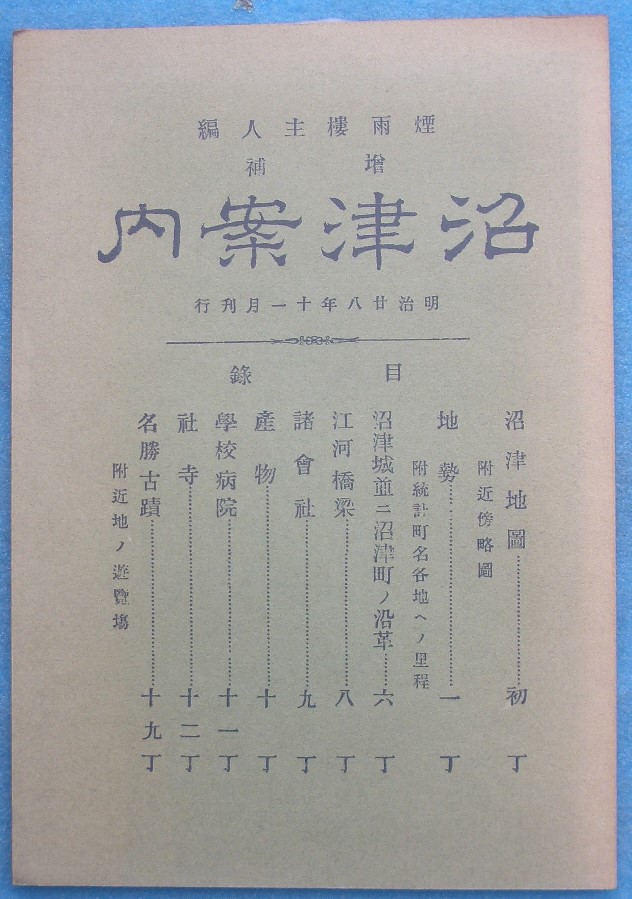 煙雨樓主人編
增補
沼津案內
明治廿八年十一月刊行
目錄
沼津地圖………初丁
附近傍略圖
地勢………一丁
附統計町名各地ヘノ里程
沼津城並ニ沼津町ノ沿革……六丁
江河橋梁………八丁
諸會社………九丁
產物………十丁
學校病院………十一丁
社寺………十二丁
名勝古蹟………十九丁
附近地ノ遊覽塲